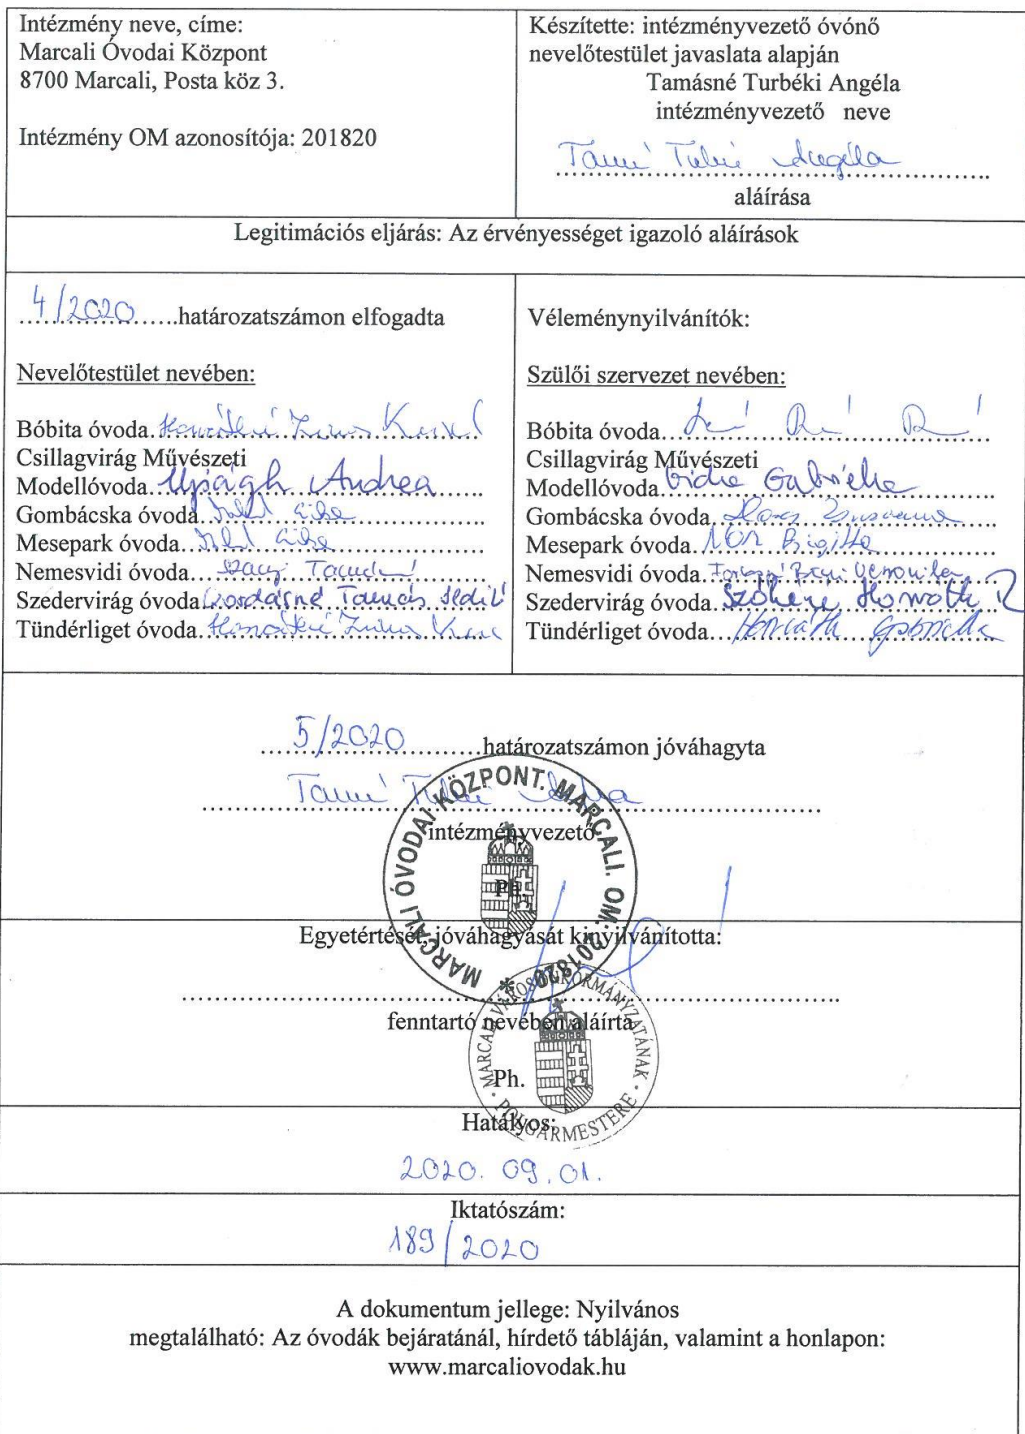 Intézmény neve, címe:
Marcali Óvodai Központ
8700 Marcali, Posta köz 3.
Intézmény OM azonosítója: 201820
Készítette: intézményvezető óvónő
nevelőtestület javaslata alapján
Tamásné Turbéki Angéla
intézményvezető neve
Angéla
aláírása
Legitimációs eljárás: Az érvényességet igazoló aláírások
4/2020 határozatszámon elfogadta
Nevelőtestület nevében:
Bóbita óvoda
Csillagvirág Művészeti
Modellóvoda Ujságh Andrea
Gombácska óvoda
Mesepark óvoda
Nemesvidi óvoda
Szedervirág óvoda Tamás
Tündérliget óvoda
Véleménynyilvánítók:
Szülői szervezet nevében:
Bóbita óvoda
Csillagvirág Művészeti
Modellóvoda Gabriella
Gombácska óvoda
Mesepark óvoda Brigitta
Nemesvidi óvoda Veronika
Szedervirág óvoda Horváth R
Tündérliget óvoda Horváth Gabriella
5/2020 határozatszámon jóváhagyta
intézményvezető
Ph.
MARCALI ÓVODAI KÖZPONT. MARCALI. OM: 201820 *
Egyetértését, jóváhagyását kinyilvánította:
fenntartó nevében aláírta
Ph.
MARCALI VÁROS ÖNKORMÁNYZATÁNAK · POLGÁRMESTERE ·
Hatályos:
2020. 09. 01.
Iktatószám:
189/2020
A dokumentum jellege: Nyilvános
megtalálható: Az óvodák bejáratánál, hírdető tábláján, valamint a honlapon:
www.marcaliovodak.hu